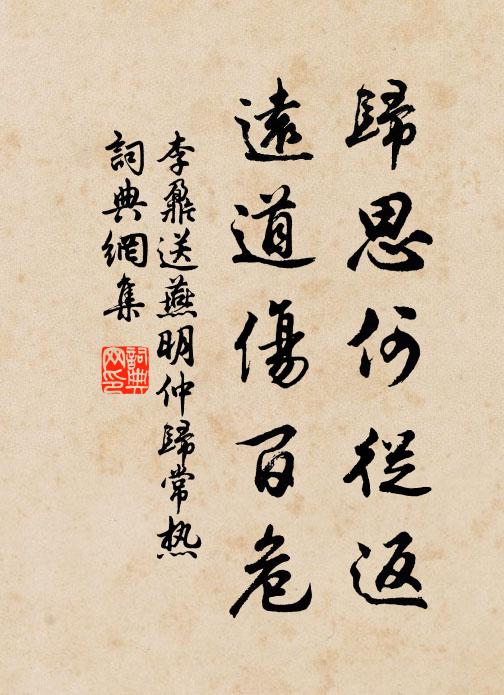 歸思何從返
遠道傷百危
李鼐送燕明仲歸常热
詞典網集
詞典
网印